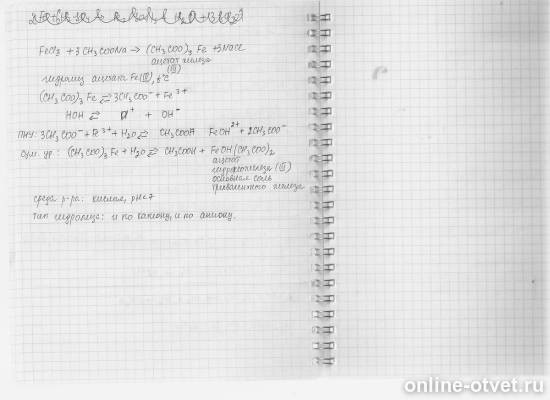 FeCl3 + 3CH3COONa → (CH3COO)3 Fe + 3NaCl
ацетат железа
(III)
гидролиз ацетата Fe(III), t°C
(CH3COO)3 Fe ⇄ 3CH3COO⁻ + Fe³⁺
HOH ⇄ H⁺ + OH⁻
ПИУ: 3CH3COO⁻ + Fe³⁺ + H2O ⇄ CH3COOH FeOH²⁺ + 2CH3COO⁻
Сум. ур.: (CH3COO)3Fe + H2O ⇄ CH3COOH + FeOH(CH3COO)2
ацетат
гидроксожелеза (III)
основная соль
трехвалентного железа
среда р-ра: кислая, pH<7
Тип гидролиза: и по катиону, и по аниону.
online-otvet.ru